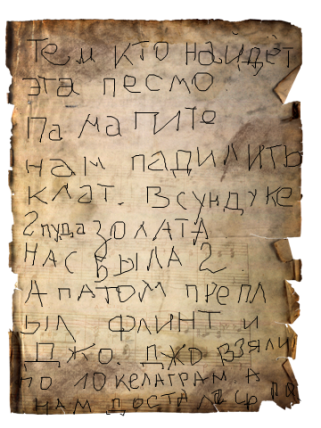 Тем кто найдёт
эта песмо
Памагите
нам падилить
клат. В сундуке
2 пуда золата
нас была 2
А патом препл
ыл флинт и
Джо. Джо взяли
по 10 келаграм а
нам досталс